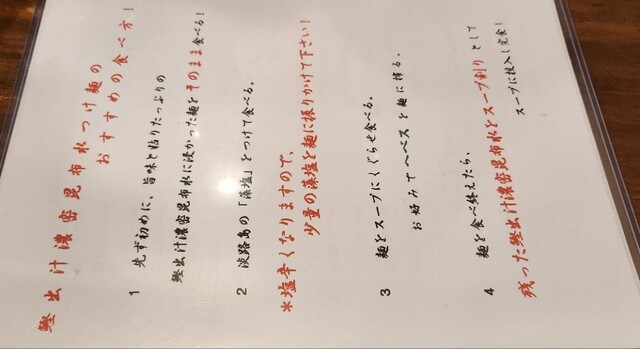 鰹出汁濃密昆布水つけ麺の
おすすめの食べ方!
1 先ず初めに、旨味と粘りたっぷりの
鰹出汁濃密昆布水に浸かった麺をそのまま食べる!
2 淡路島の「藻塩」をつけて食べる。
*塩辛くなりますので、
少量の藻塩を麺に振りかけて下さい!
3 麺をスープにくぐらせ食べる。
お好みでヘベスを麺に搾る。
4 麺を食べ終えたら、
残った鰹出汁濃密昆布水をスープ割りとして
スープに投入し完食!